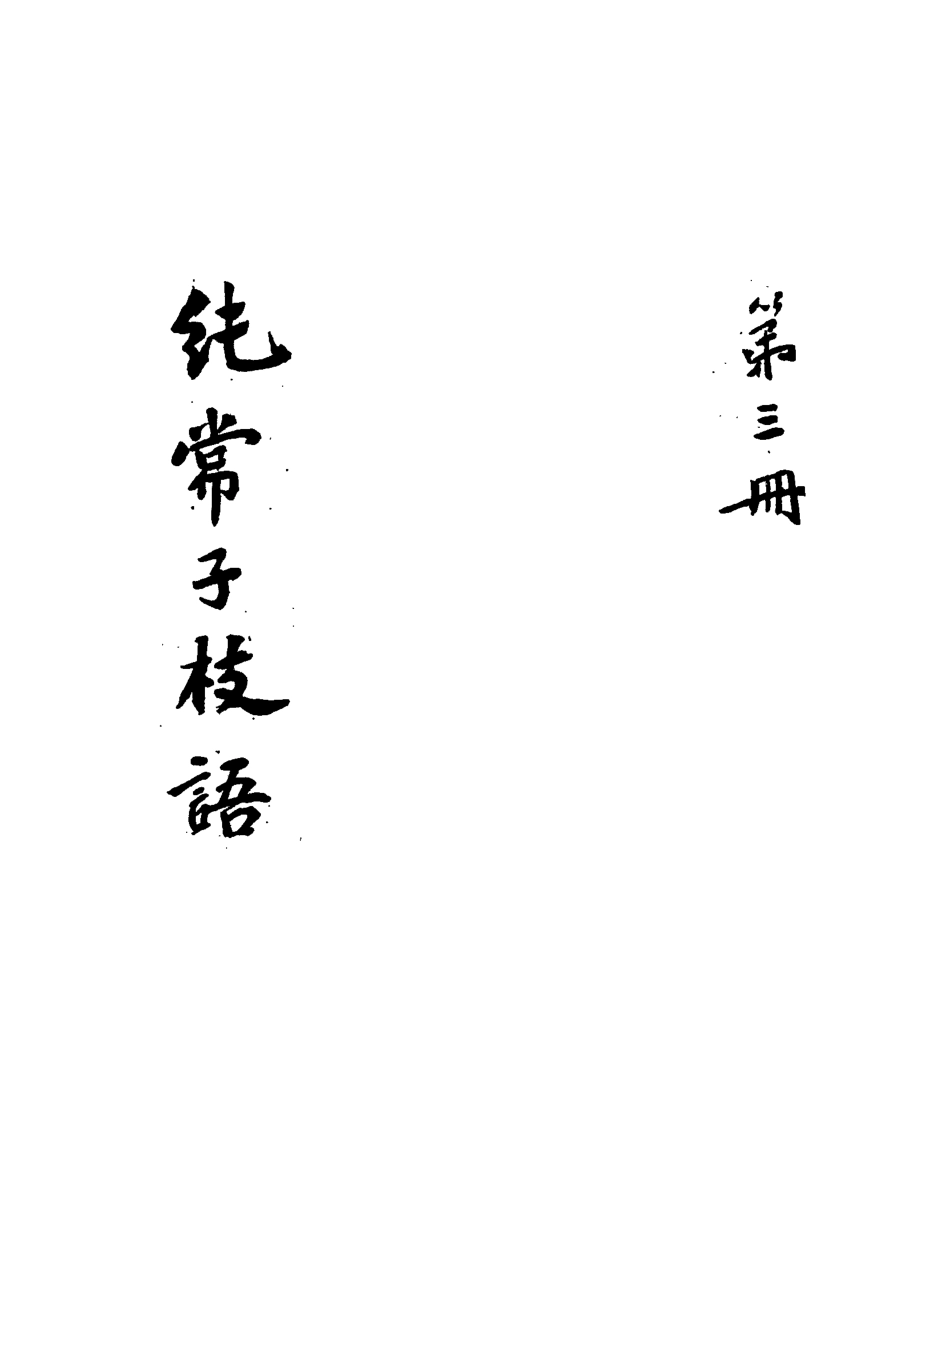 第三冊
純常子枝語